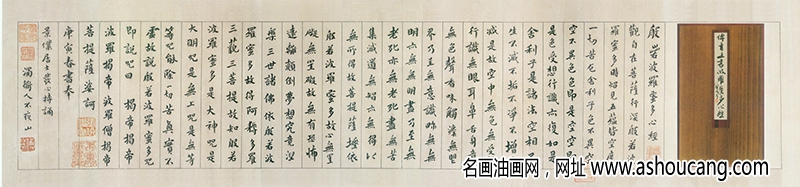 般若波羅蜜多心經
觀自在菩薩行深般若波
羅蜜多時照見五蘊皆空度
一切苦厄舍利子色不異空
空不異色色即是空空即是
色受想行識亦復如是
舍利子是諸法空相不
生不滅不垢不淨不增不
減是故空中無色無受想
行識無眼耳鼻舌身意
無色聲香味觸法無眼
界乃至無意識界無無
明亦無無明盡乃至無
老死亦無老死盡無苦
集滅道無智亦無得以
無所得故菩提薩埵依
般若波羅蜜多故心無罣
礙無罣礙故無有恐怖
遠離顛倒夢想究竟涅
槃三世諸佛依般若波
羅蜜多故得阿耨多羅
三藐三菩提故知般若
波羅蜜多是大神咒是
大明咒是無上咒是無等
等咒能除一切苦真實不
虛故說般若波羅蜜多咒
即說咒曰 揭帝揭帝
波羅揭帝 波羅僧揭帝
菩提薩婆訶
庚寅春書奉
居士發心持誦
名画油画网，网址 www.ashoucang.com